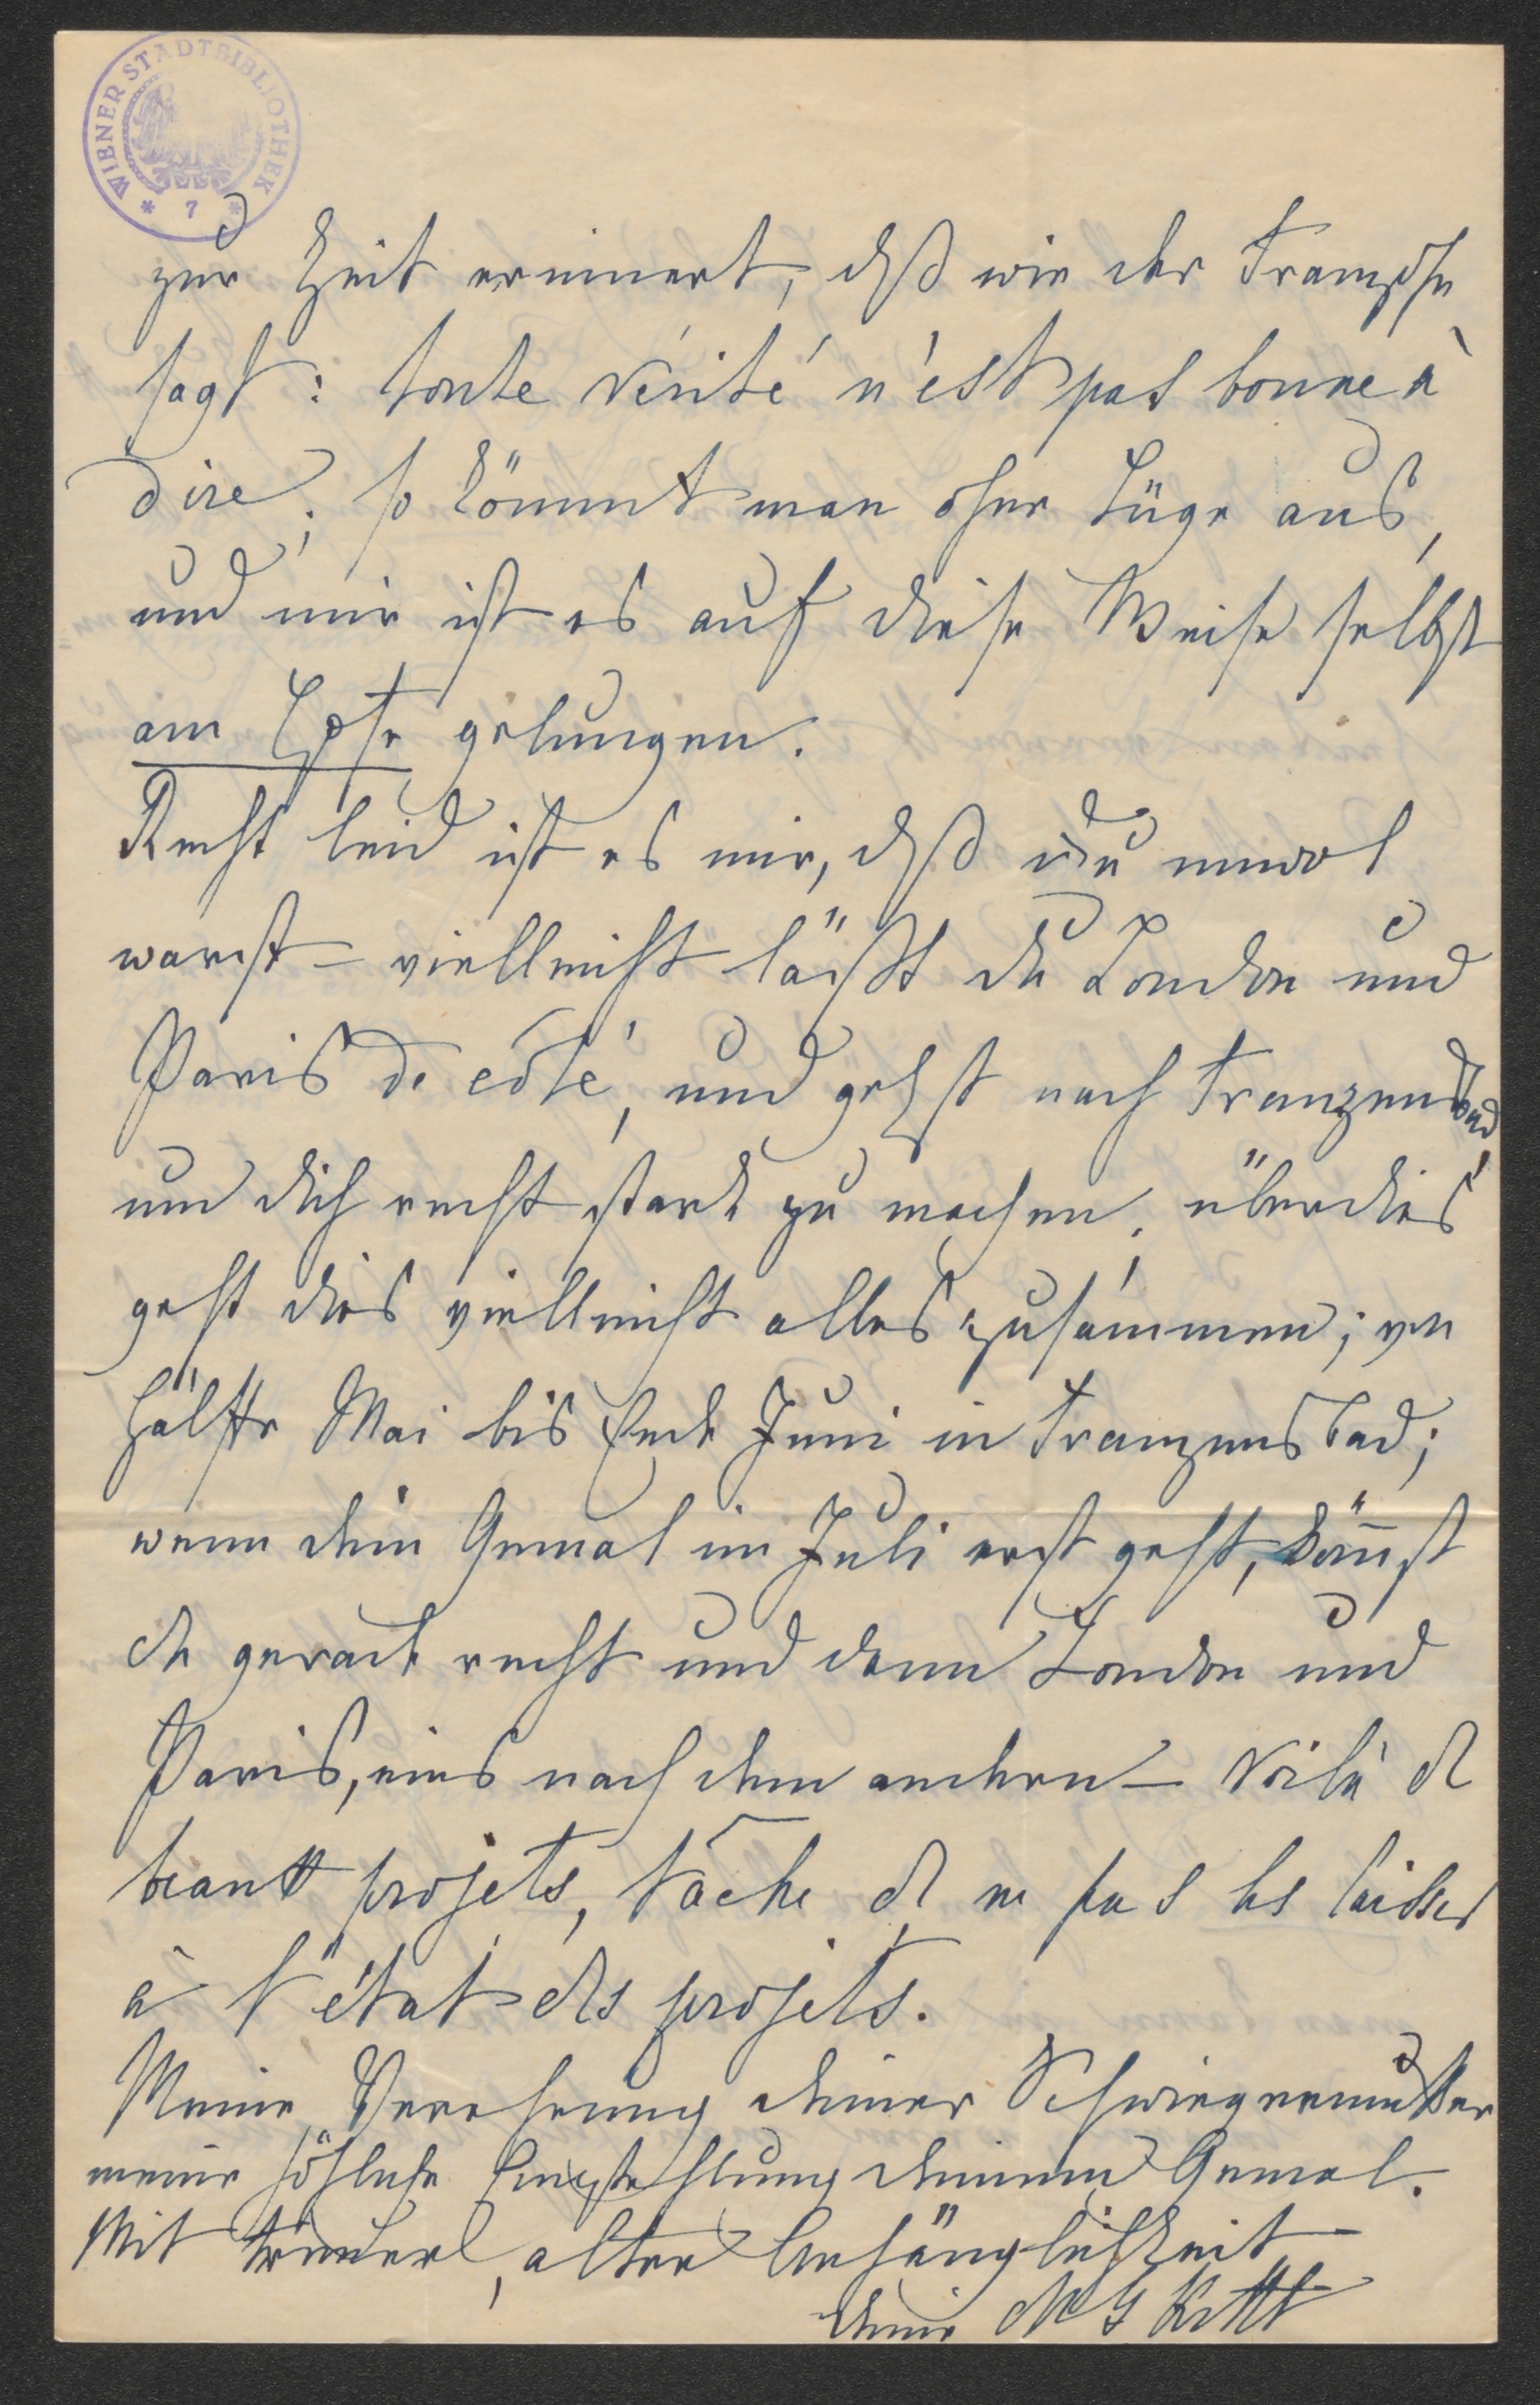 WIENER STADTBIBLIOTHEK
* 7 *
zur Zeit erinnert, daß wie der Franzose
sagt: toute vérité n'est pas bonne à
dire; so kömmt man ohne Lüge aus,
und mir ist es auf diese Weise selbst
am Hofe gelungen.
Recht leid ist es mir, daß du unwol
warst – vielleicht läßt du London und
Paris de côté, und gehst nach Franzensbad
um dich recht stark zu machen, überdies
geht dies vielleicht alles zusammen; von
Hälfte Mai bis Ende Juni in Franzensbad;
wenn dein Gemal im Juli erst geht, kom̅st
du gerade recht und dann London und
Paris, eins nach dem andern – Voilà de
beaux projets, tâche de ne pas les laisser
à l'état des projets.
Meine Verehrung deiner Schwiegermutter
meine höfliche Empfehlung deinem Gemal.
Mit treuer, alter Anhänglichkeit
deine